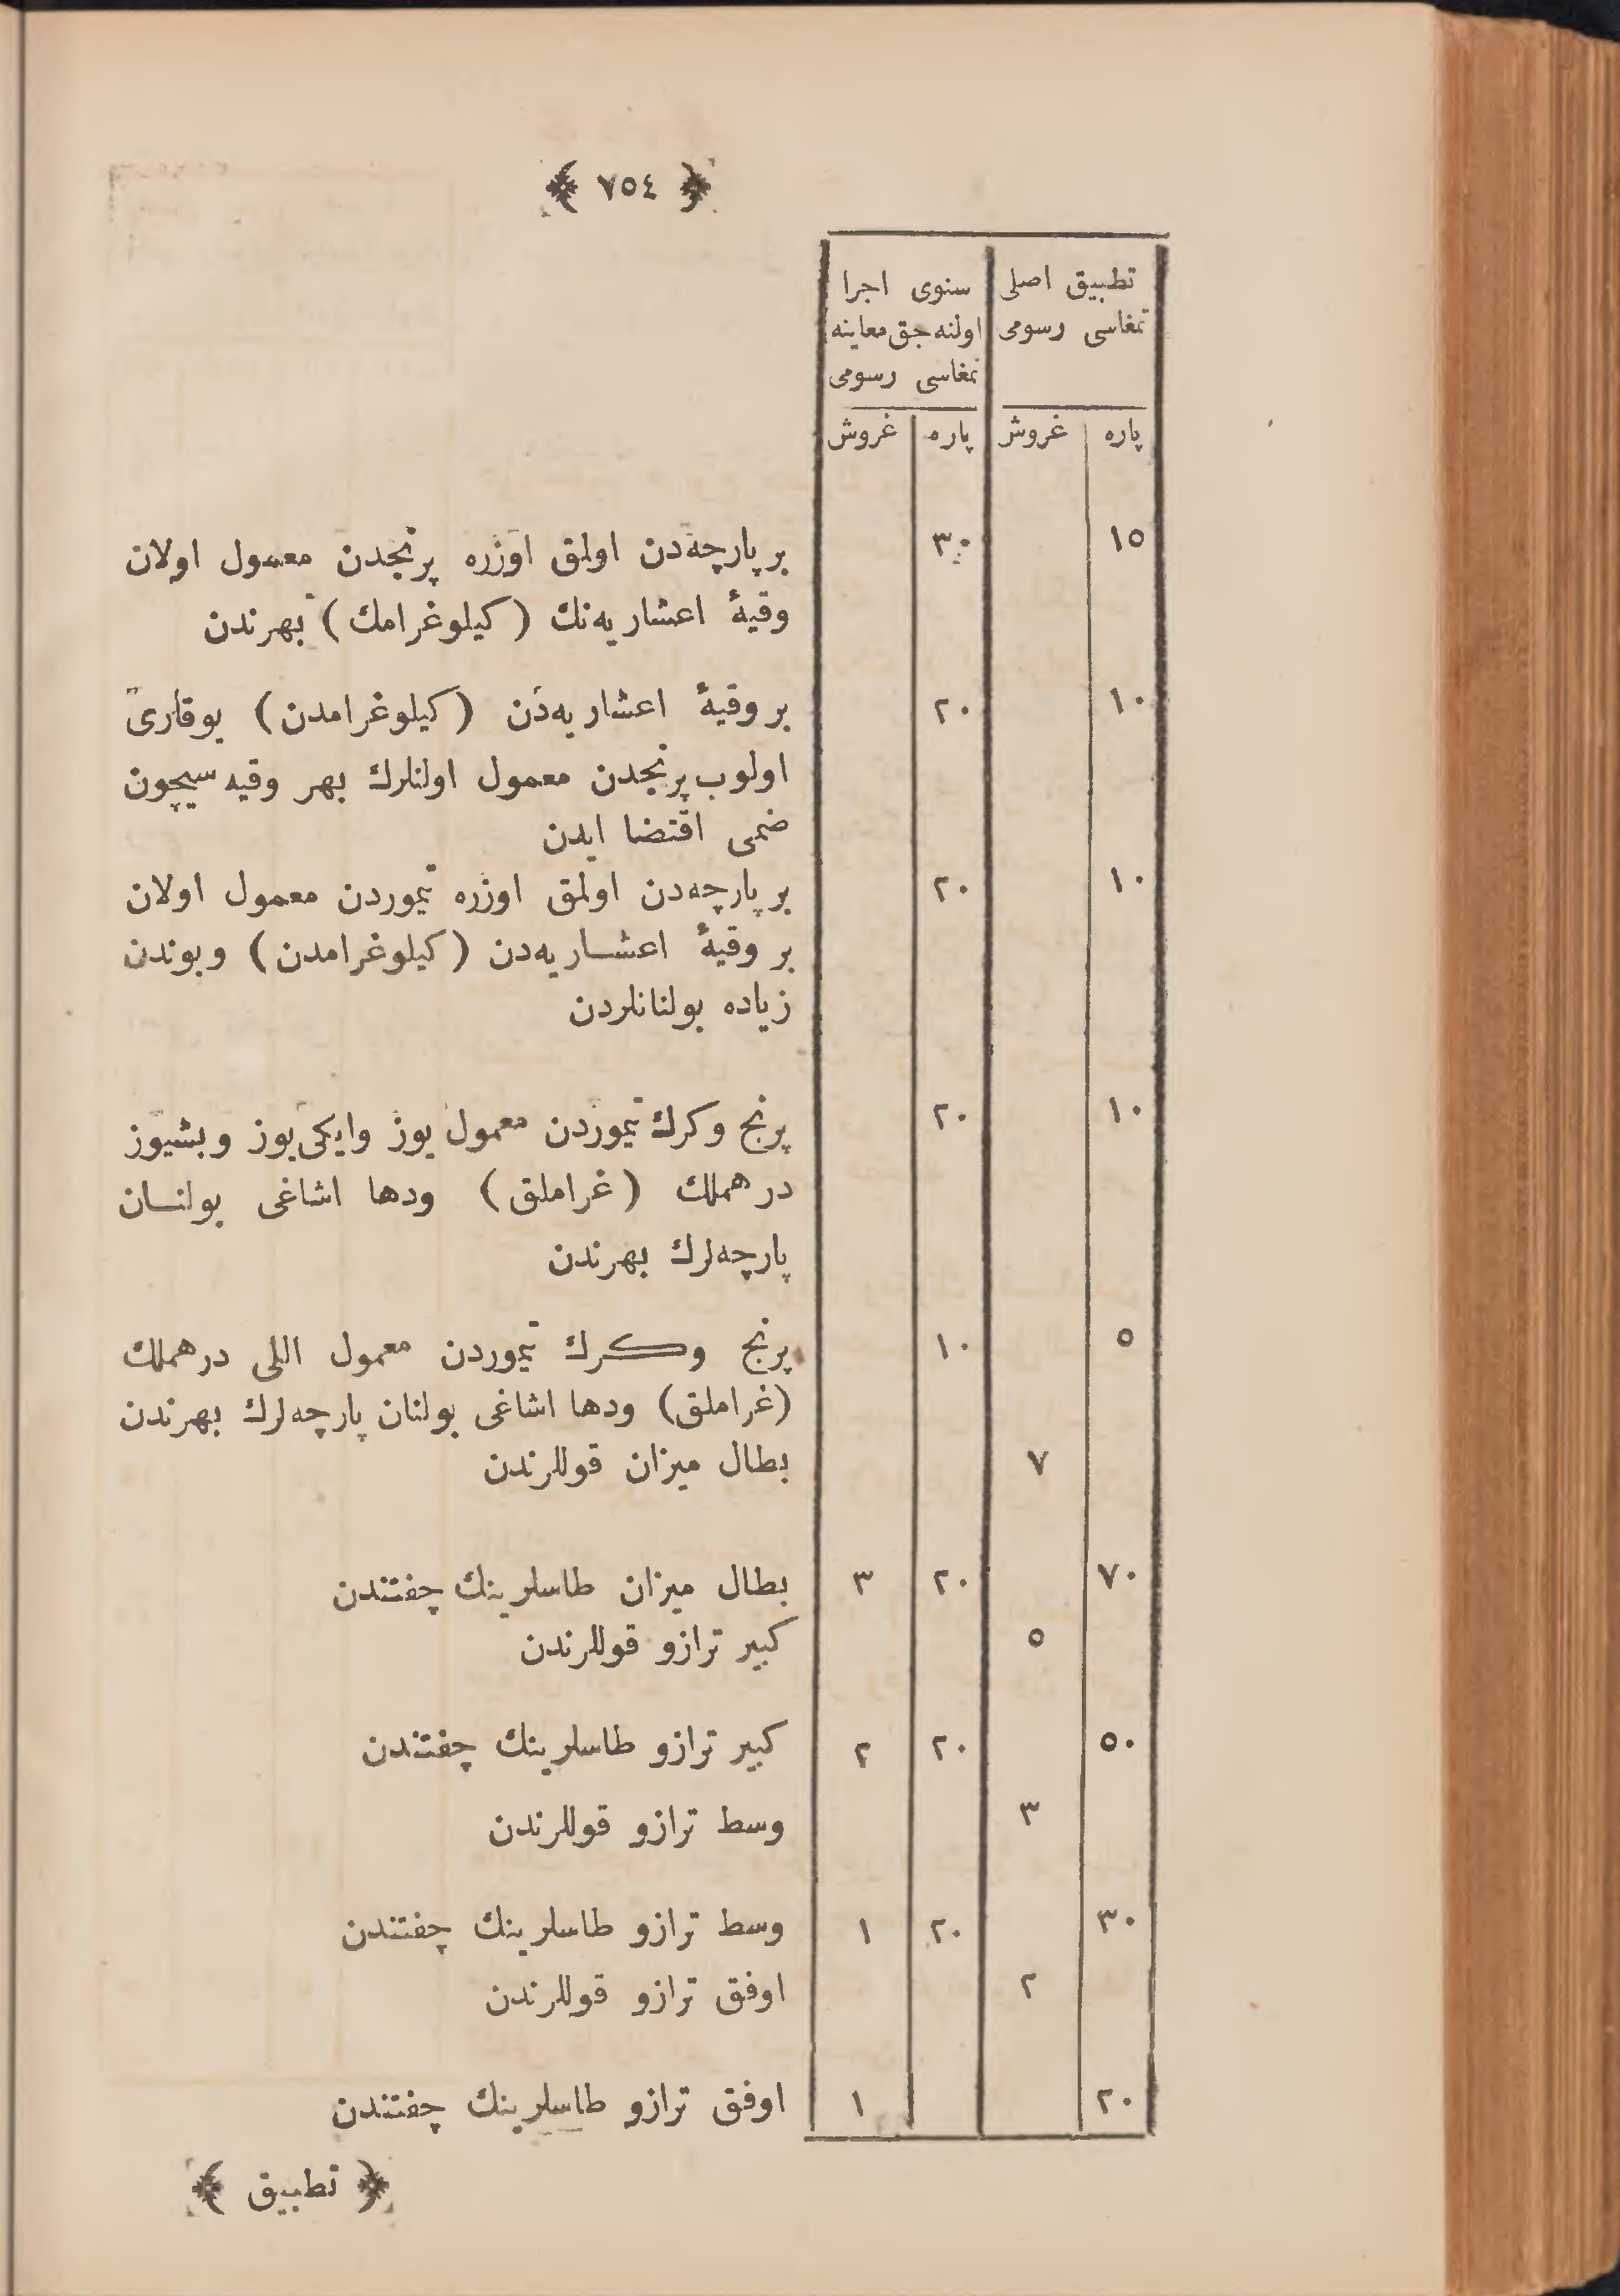 ﴿ ٧٥٤ ﴾
تطبيق اصلى
تمغاسى رسومى
سنوى اجرا
اولنه‌جق معاينه
تمغاسى رسومى
پاره غروش پاره غروش
١٥ ٣٠ بر پارچه‌دن اولمق اوزره پرنجدن معمول اولان
وقيۀ اعشاريه‌نك (كيلوغرامك) بهرندن
١٠ ٢٠ بر وقيۀ اعشاريه‌دن (كيلوغرامدن) يوقارى
اولوب پرنجدن معمول اولنلرك بهر وقيه سيچون
ضمى اقتضا ايدن
١٠ ٢٠ بر پارچه‌دن اولمق اوزره تيموردن معمول اولان
بر وقيۀ اعشاريه‌دن (كيلوغرامدن) وبوندن
زياده بولنانلردن
١٠ ٢٠ پرنج وكرك تيموردن معمول يوز وايكى‌يوز وبشيوز
درهملك (غراملق) ودها اشاغى بولنان
پارچه‌لرك بهرندن
٥ ١٠ پرنج وكرك تيموردن معمول اللى درهملك
(غراملق) ودها اشاغى بولنان پارچه‌لرك بهرندن
٧ بطال ميزان قوللرندن
٧٠ ٢٠ ٣ بطال ميزان طاسلرينك چفتندن
٥ كبير ترازو قوللرندن
٥٠ ٢٠ ٢ كبير ترازو طاسلرينك چفتندن
٣ وسط ترازو قوللرندن
٣٠ ٢٠ ١ وسط ترازو طاسلرينك چفتندن
٢ اوفق ترازو قوللرندن
٢٠ ١ اوفق ترازو طاسلرينك چفتندن
﴿ تطبيق ﴾